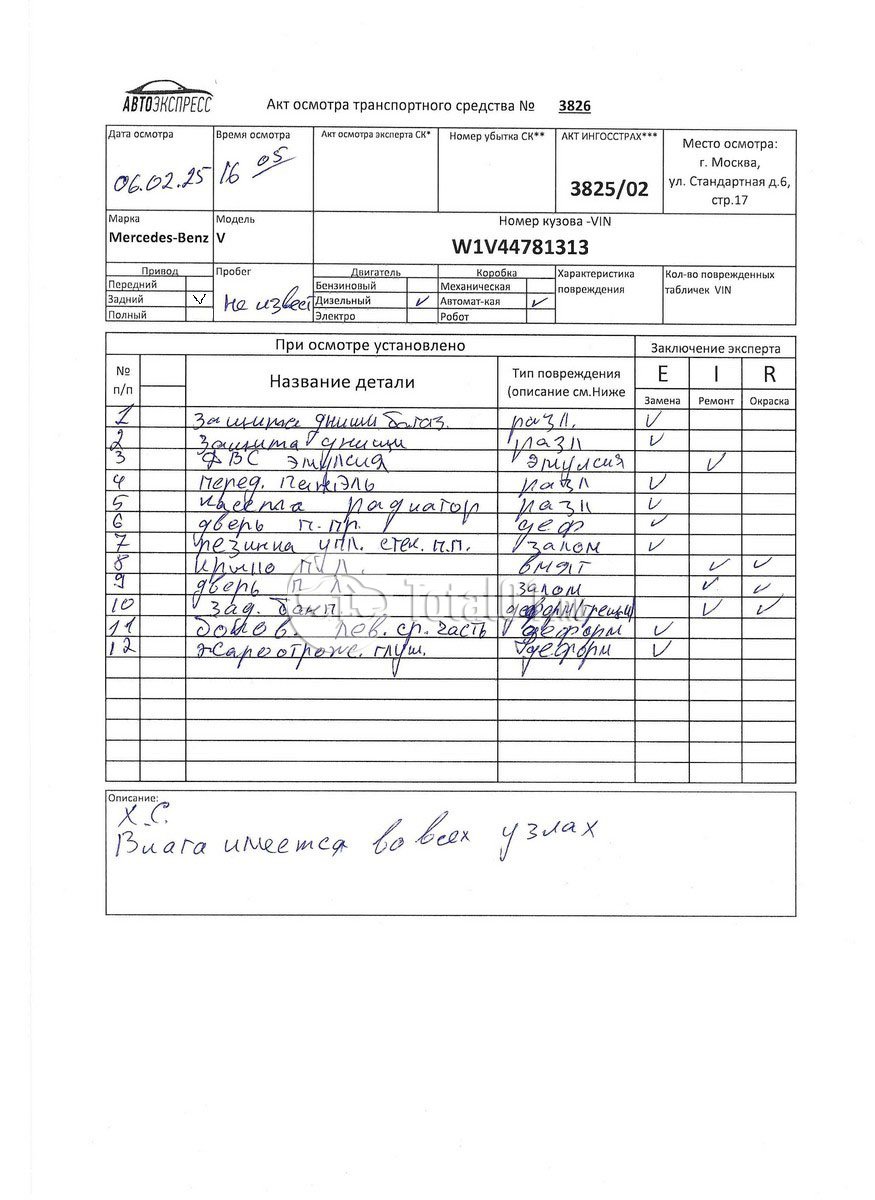 АВТОЭКСПРЕСС
Акт осмотра транспортного средства № 3826
Дата осмотра Время осмотра Акт осмотра эксперта СК* Номер убытка СК** АКТ ИНГОССТРАХ*** Место осмотра:
г. Москва,
06.02.25 16 05 3825/02 ул. Стандартная д.6,
стр.17
Марка Модель Номер кузова -VIN
Mercedes-Benz V W1V44781313
Привод Пробег Двигатель Коробка Характеристика Кол-во поврежденных
Передний Бензиновый Механическая повреждения табличек VIN
Задний V не извест Дизельный V Автомат-кая V
Полный Электро Робот
При осмотре установлено Заключение эксперта
№ Название детали Тип повреждения E I R
п/п (описание см.Ниже Замена Ремонт Окраска
1 Защита днищи багаз. разл. V
2 Защита днищи разл V
3 ДВС эмулсия эмулсия V
4 перед. разл V
5 касета радиатор разл V
6 дверь п.пр. деф V
7 резинка упл. стек. п.п. залом V
8 крыло п л. вмят V V
9 дверь п л залом V V
10 зад. бамп деформ/трещи V V
11 боков. пов. ср. часть деформ V
12 жароотраж. глуш. деформ V
Total01.ru
Описание:
Х.С.
Влага имеется во всех узлах